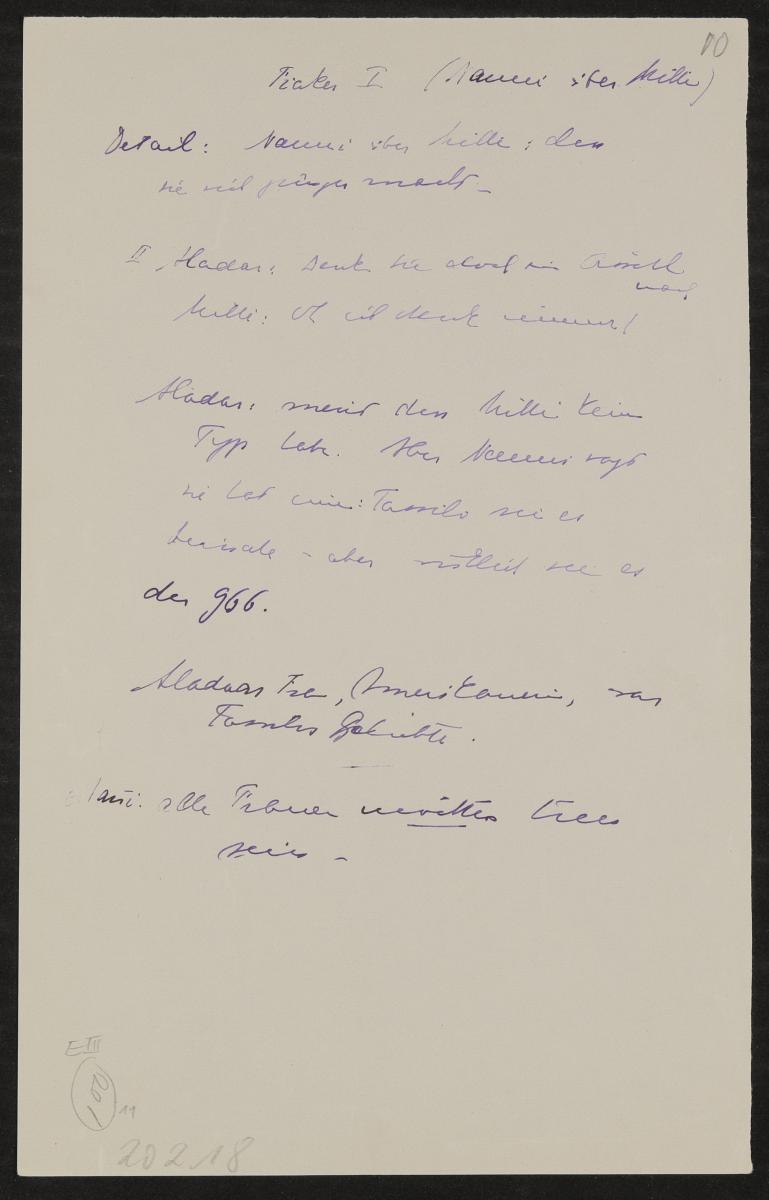 10
Fiaker I (Nanni über Milli)
Detail: Nanni über Milli: dass
sie sich jünger macht –
II Aladar: Denken Sie doch ein bissl
nach
Milli: Oh ich denk immer!
Aladar: meint dass Milli kein
Typ habe. Aber Nanni sagt
sie hat einen: Tassilo sei es
beinahe – aber sei es
der 966.
Aladars Frau, Amerikanerin, war
Tassilos Geliebte.
alle Frauen möchten treu
sein –
E III
201
11
20218